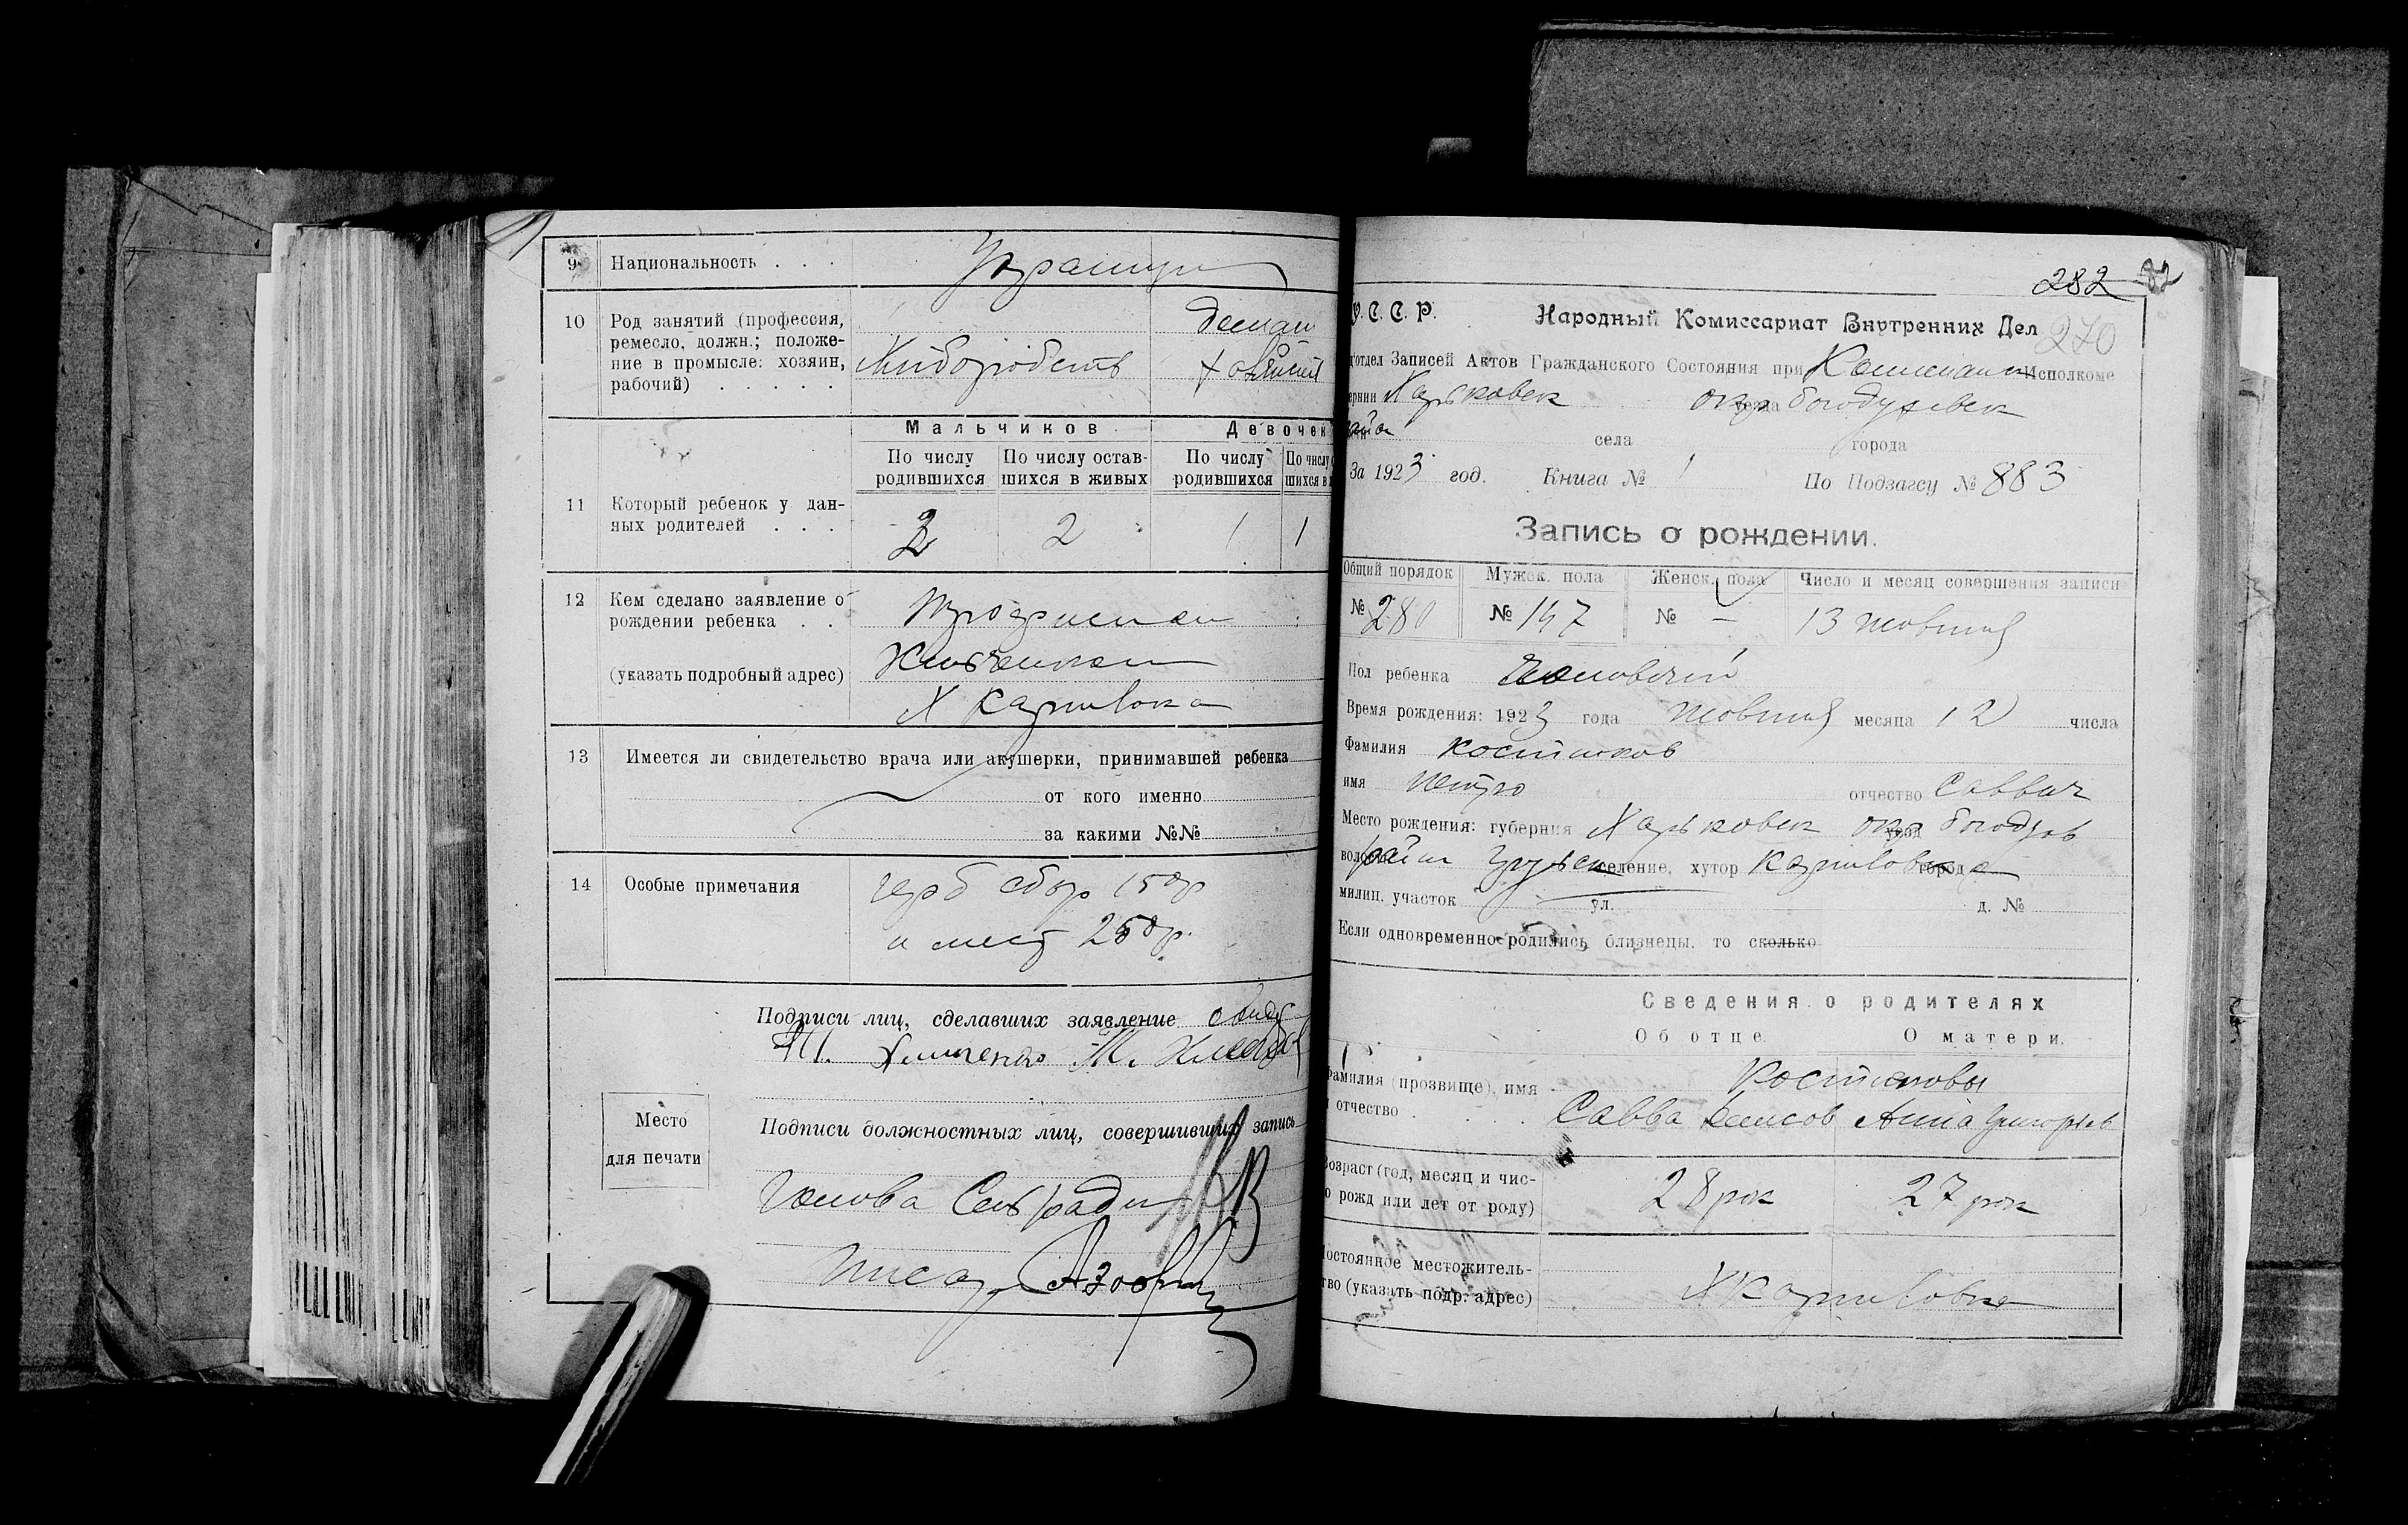 9 Национальность . . . Украинцы
10 Род занятий (профессия,
ремесло, должн.; положе-
ние в промысле: хозяин,
рабочий) . . . . . Хлiборобств
Мальчиков Девочек
По числу родившихся По числу остав-шихся в живых По числу родившихся По числу
11 Который ребенок у дан-
ных родителей . . . 2 2 1 1
12 Кем сделано заявление о
рождении ребенка . .
(указать подробный адрес)
Х Карпивока
13 Имеется ли свидетельство врача или акушерки, принимавшей ребенка
от кого именно
за какими №№
14 Особые примечания герб сбор 150р
и мест 250р.
Подписи лиц, сделавших заявление
Место
для печати
Подписи должностных лиц, совершивших запись
Голова Сельради
Писар
282 82
270
У. С. С. Р. Народный Комиссариат Внутренних Дел
отдел Записей Актов Гражданского Состояния при Исполкоме
ернии Харьковск окр уезда Богодуховск
района села города
За 1923 год. Книга № 1 По Подзагсу № 883
Запись о рождении.
Общий порядок Мужск. пола Женск. пола Число и месяц совершения записи
№ 280 № 147 № — 13 жовтня
Пол ребенка Чоловечий
Время рождения: 1923 года жовтня месяца 12 числа
Фамилия Костюков
имя Петро отчество Саввич
Место рождения: губерния Харьковск окр уезд Богодухов
район селение, хутор Карпиловка город
милиц. участок ул. д. №
Если одновременно родились близнецы, то сколько
Сведения о родителях
Об отце. О матери.
Костюковы
Фамилия (прозвище), имя
отчество . . . Савва Денисов Анна Григорьев
Возраст (год, месяц и чис-
о рожд или лет от роду) 28 рок 27 рок
Постоянное местожитель-
тво (указать подр. адрес) Х Карпиловка